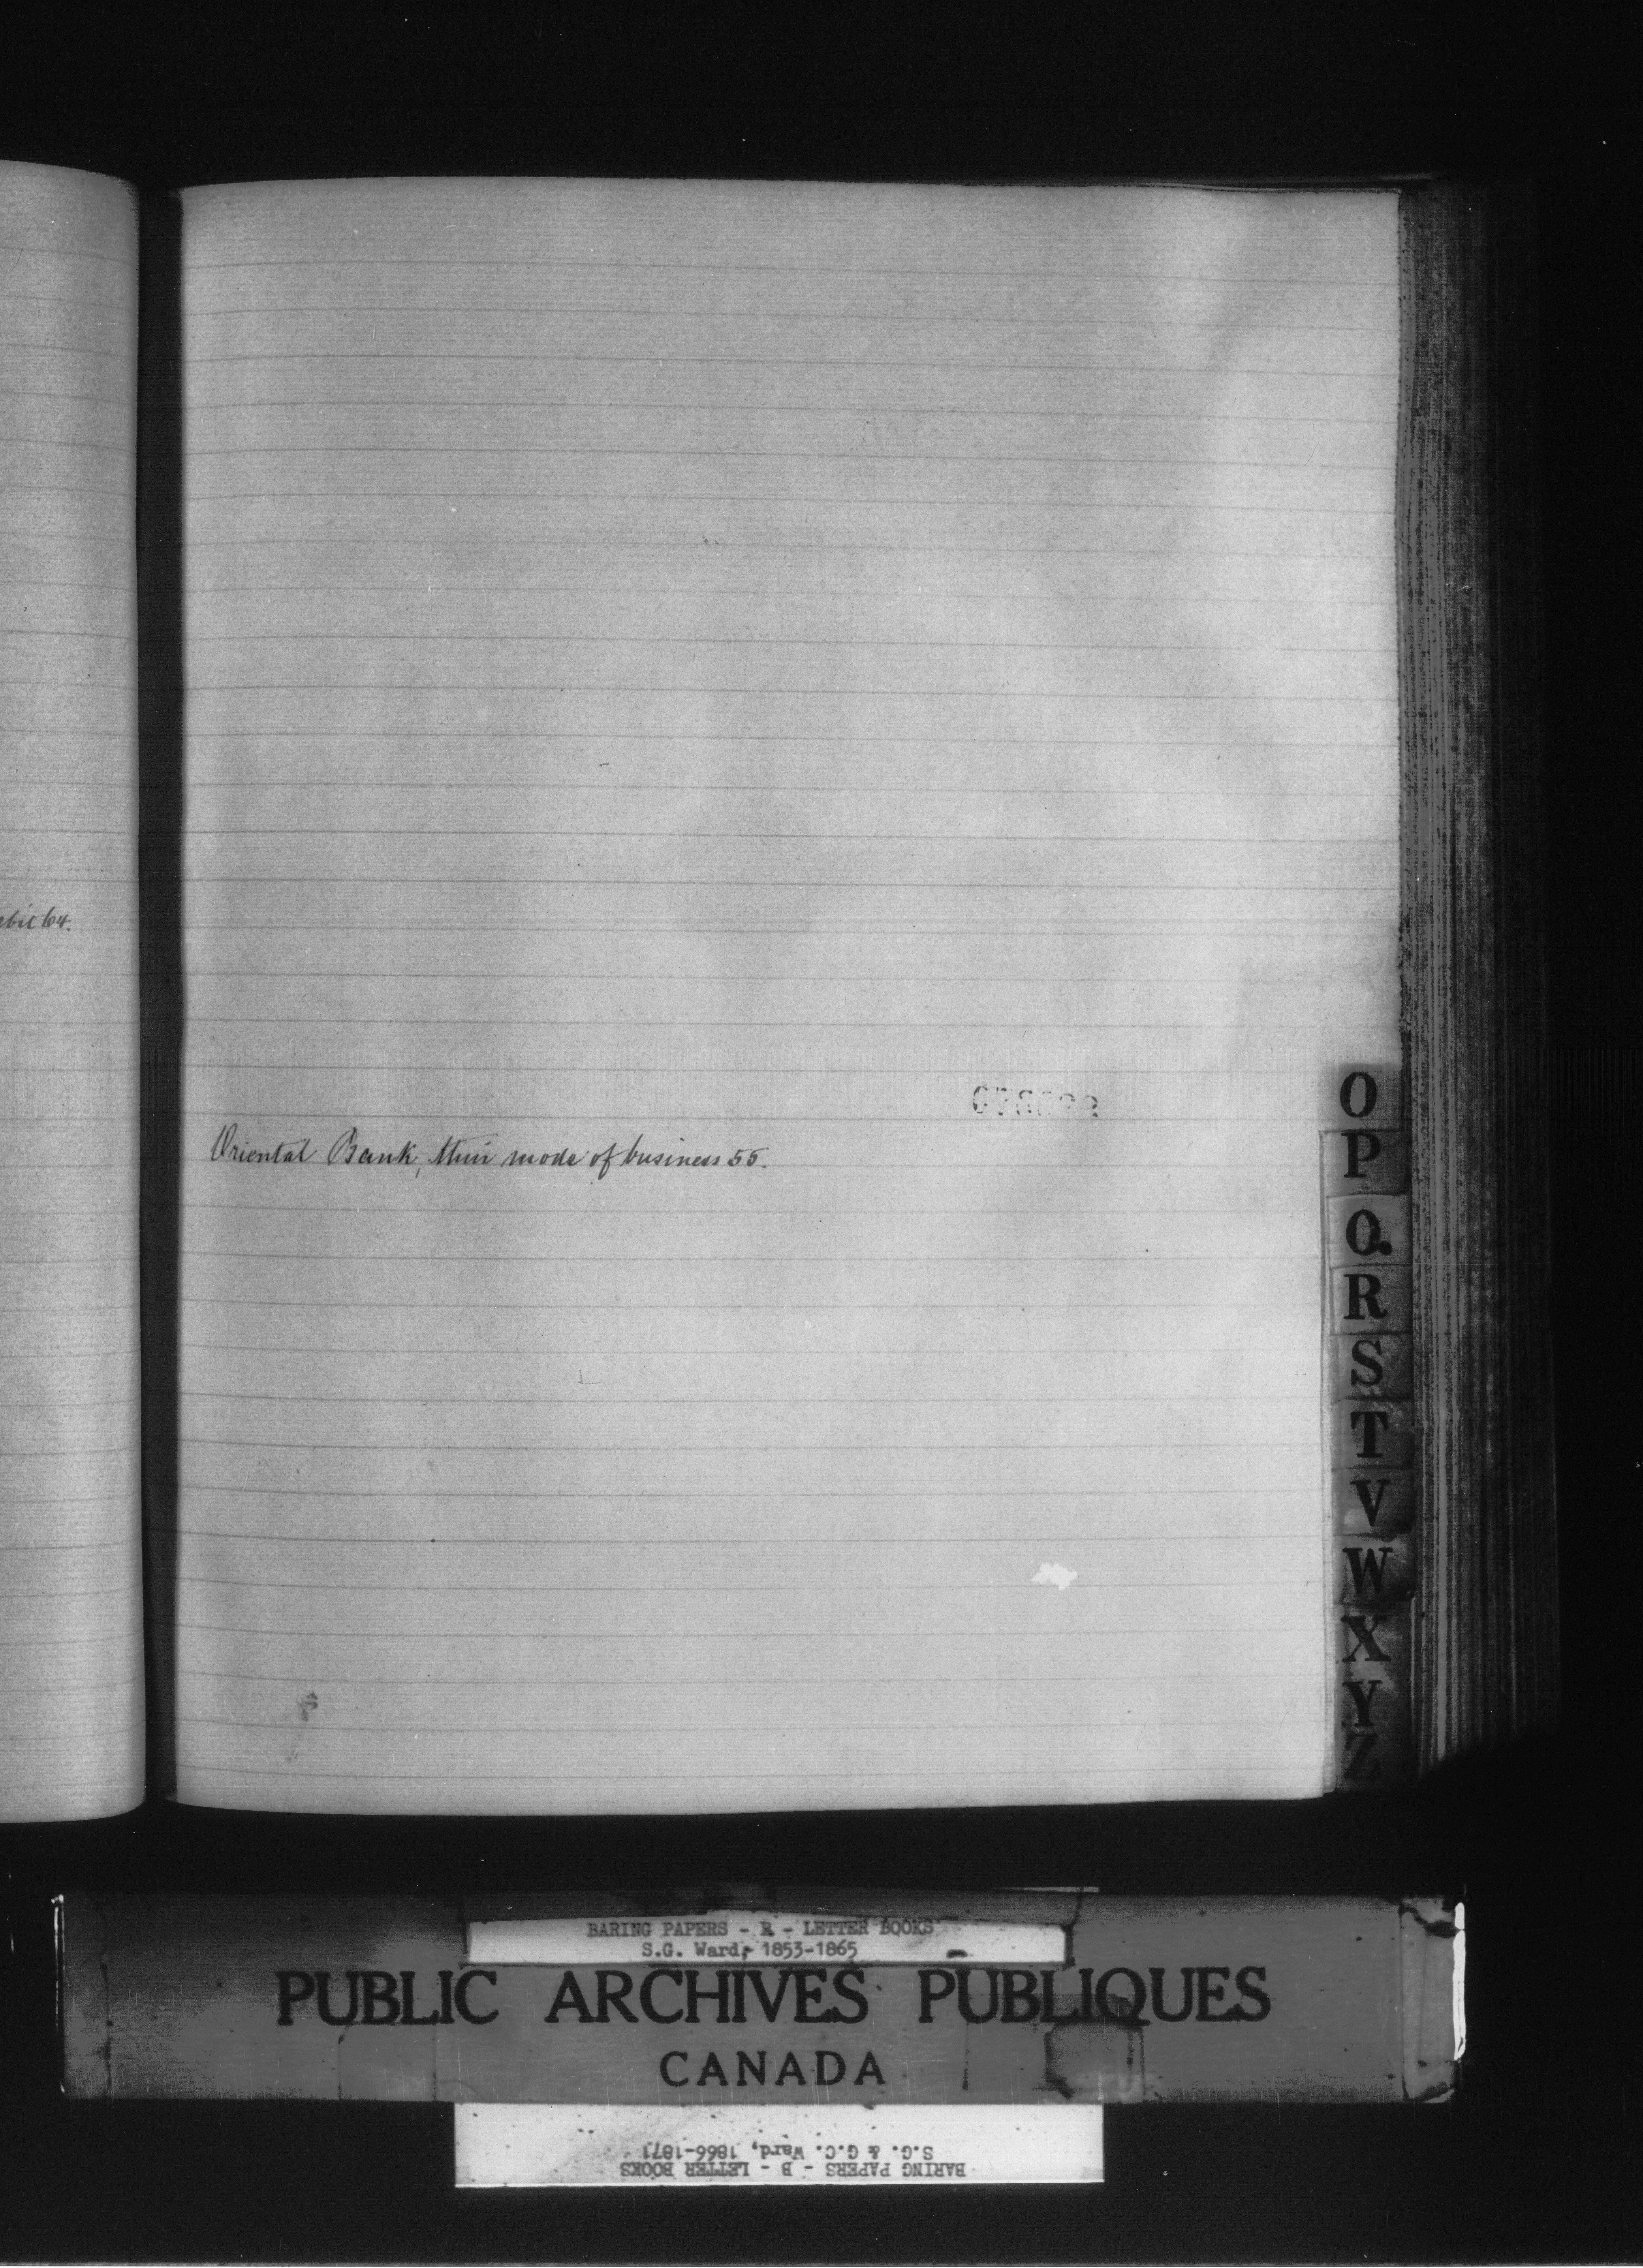 Oriental Bank, their mode of business 55.
O
P
Q
R
S
T
V
W
X
Y
Z
BARING PAPERS - B - LETTER BOOKS
S.G. Ward, 1853-1865
PUBLIC ARCHIVES PUBLIQUES
CANADA
BARING PAPERS - B - LETTER BOOKS
S.G. & G.C. Ward, 1866-1871